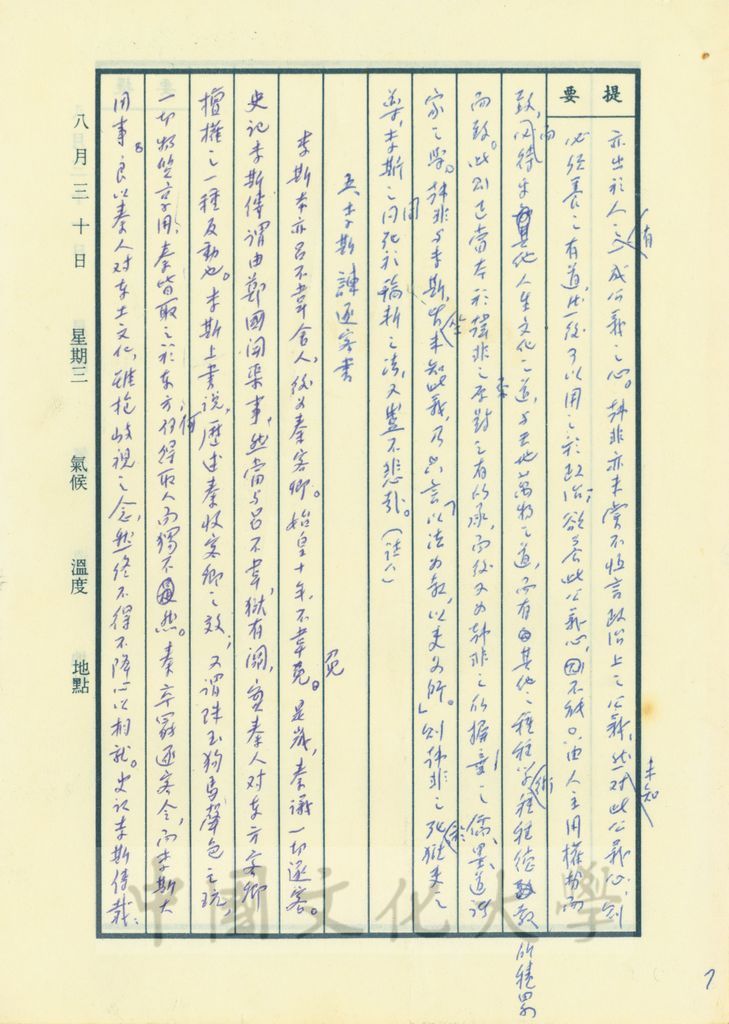 提要
亦出於人之有成公義之心。韓非亦未嘗不恆言政治上之公義，然對此公義心，則未知
必須養之有道，然後可以用之於政治，欲養此公義心，固不能只由人主用權勢而
致，而得生其他人生文化之道，與天地萬物之道，而有由其他之種種學術種種德教所積累
而致。此則已當本於韓非之原對之有所承，而後又為韓非之所擯棄之儒墨道諸
家之學。韓非與李斯，皆全未知此義，乃只言「以法為教，以吏為師。」則韓非之死獄吏之
藥，李斯之同死於稿斬之法，又豈不悲哉。（註八）
五李斯諫逐客書
李斯本亦呂不韋舍人，後為秦客卿。始皇十年，不韋免。是歲，秦議一切逐客。
免
史記李斯傳謂由鄭國開渠事，然當與呂不韋獄有關，實秦人對東方客卿
擅權之一種反動也。李斯上書說，歷述秦收客卿之效，又謂珠玉狗馬聲色之玩，
一切物質享用，秦皆取之於東方，何得取人而獨不然。秦卒罷逐客令，而李斯大
用事。良以秦人對東土文化，雖抱歧視之念，然終不得不降心以相就。史記李斯傳載：
八月三十日 星期三 氣候 溫度 地點
中國文化大學
7